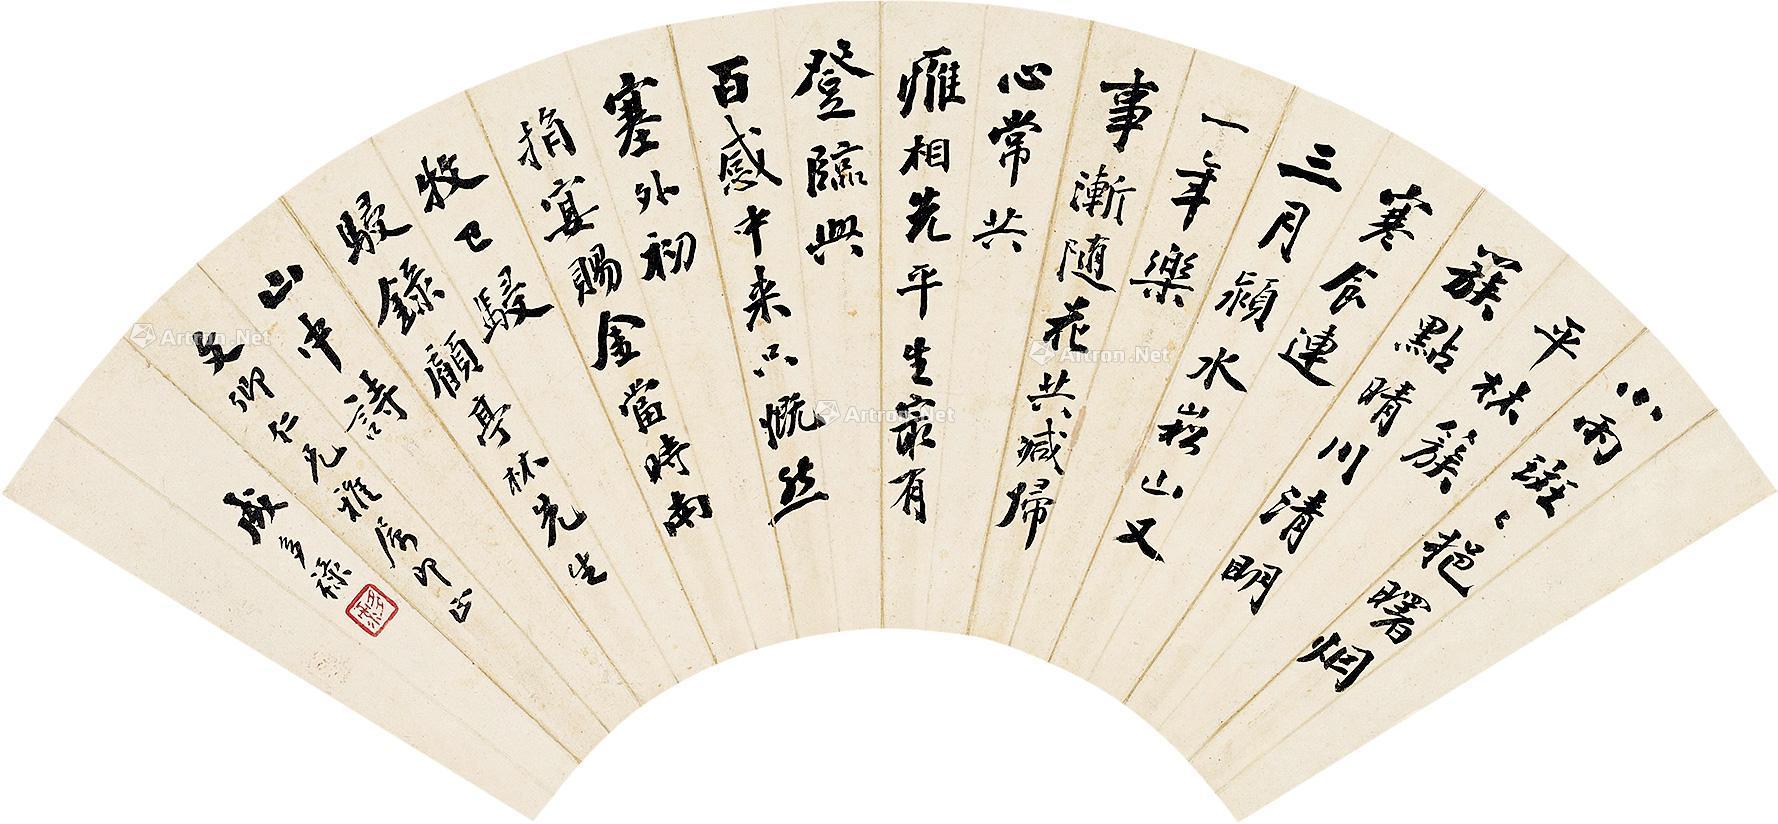 小雨斑〻浥曙烟
平林簇
簇點晴川清明
寒食連
三月潁水崧山又
一年樂
事漸随花共減歸
心常共
雁相先平生最有
登臨興
百感中来只慨然
塞外初
捐宴賜金當時南
牧已駸
駸錄顧亭林先生
山中詩
文卿仁兄雅屬即正
成多祿
Artron.Net
Artron.Net
Artron.Net